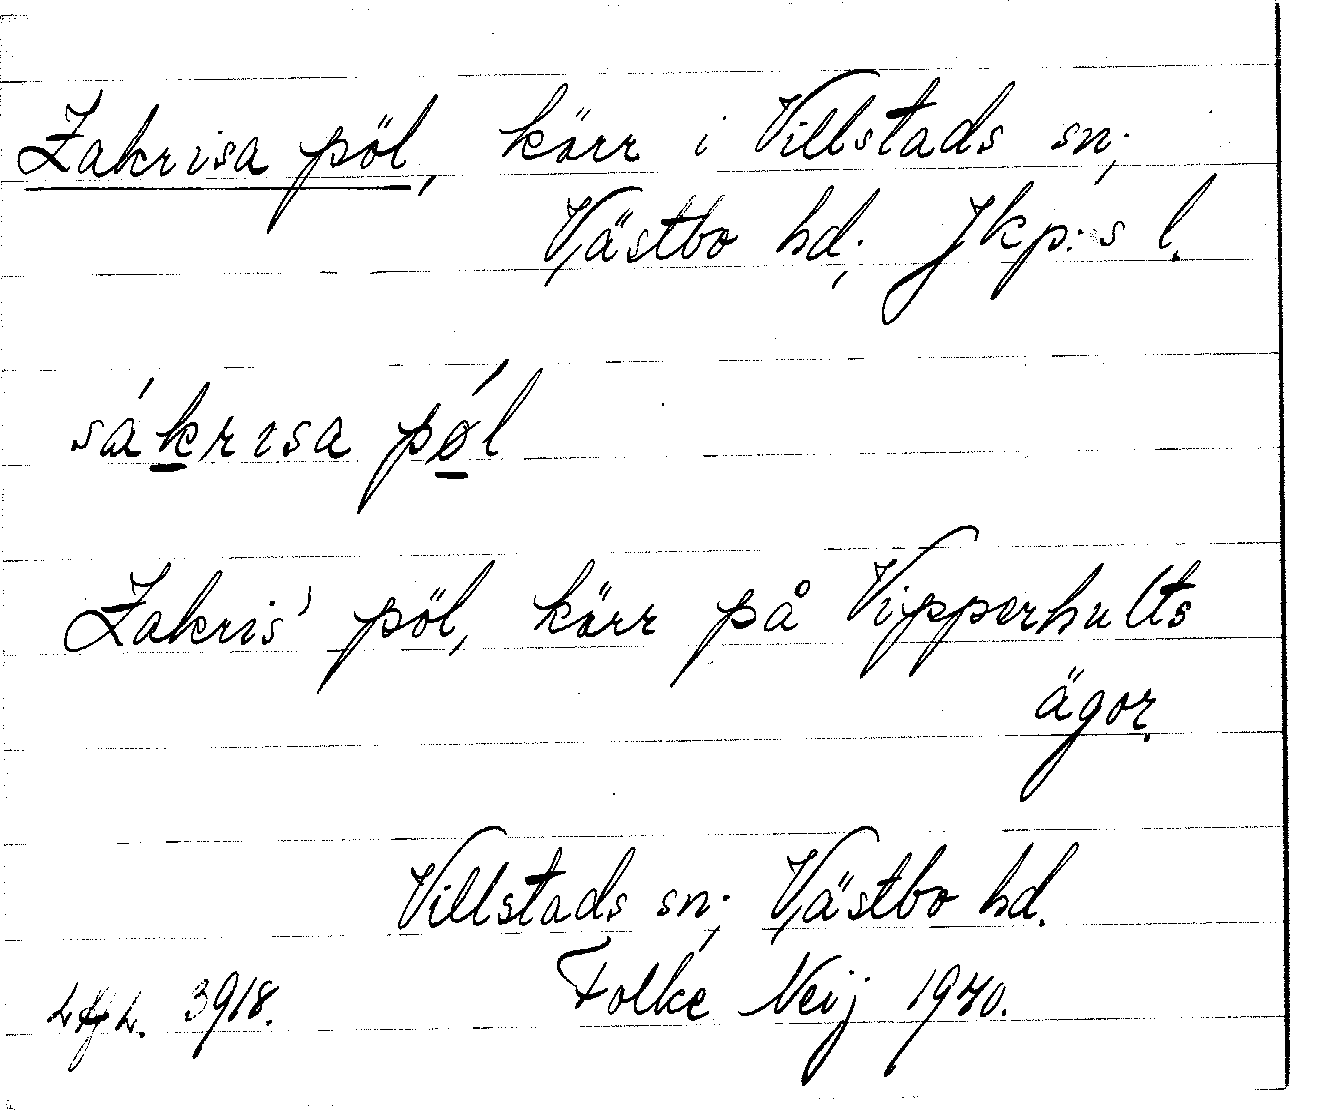 Zakrisa pöl, kärr i Villstads sn;
Västbo hd; Jkp:s l.
sákrisa pǿl
Zakris' pöl, kärr på Vipperhults
ägor.
Villstads sn; Västbo hd.
3918. Folke Neij 1940.